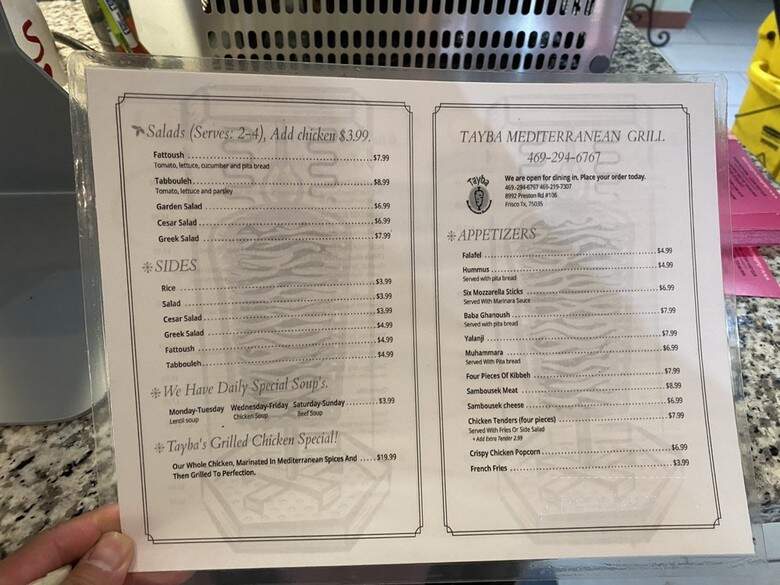 Salads (Serves: 2-4), Add chicken $3.99.
Fattoush $7.99
Tomato, lettuce, cucumber and pita bread
Tabbouleh $8.99
Tomato, lettuce and parsley
Garden Salad $6.99
Cesar Salad $6.99
Greek Salad $7.99
SIDES
Rice $3.99
Salad $3.99
Cesar Salad $3.99
Greek Salad $4.99
Fattoush $4.99
Tabbouleh $4.99
We Have Daily Special Soup's.
Monday-Tuesday Wednesday-Friday Saturday-Sunday $3.99
Lentil soup Chicken Soup Beef Soup
Tayba's Grilled Chicken Special!
Our Whole Chicken, Marinated In Mediterranean Spices And $19.99
Then Grilled To Perfection.
TAYBA MEDITERRANEAN GRILL
469-294-6767
Tayba
We are open for dining in. Place your order today.
469-294-6767 469-219-7307
8992 Preston Rd #106
Frisco Tx, 75035
APPETIZERS
Falafel $4.99
Hummus $4.99
Served with pita bread
Six Mozzarella Sticks $6.99
Served With Marinara Sauce
Baba Ghanoush $7.99
Served with pita bread
Yalanji $7.99
Muhammara $6.99
Served With Pita bread
Four Pieces Of Kibbeh $7.99
Sambousek Meat $8.99
Sambousek cheese $6.99
Chicken Tenders (four pieces) $7.99
Served With Fries Or Side Salad
+ Add Extra Tender 2.99
Crispy Chicken Popcorn $6.99
French Fries $3.99